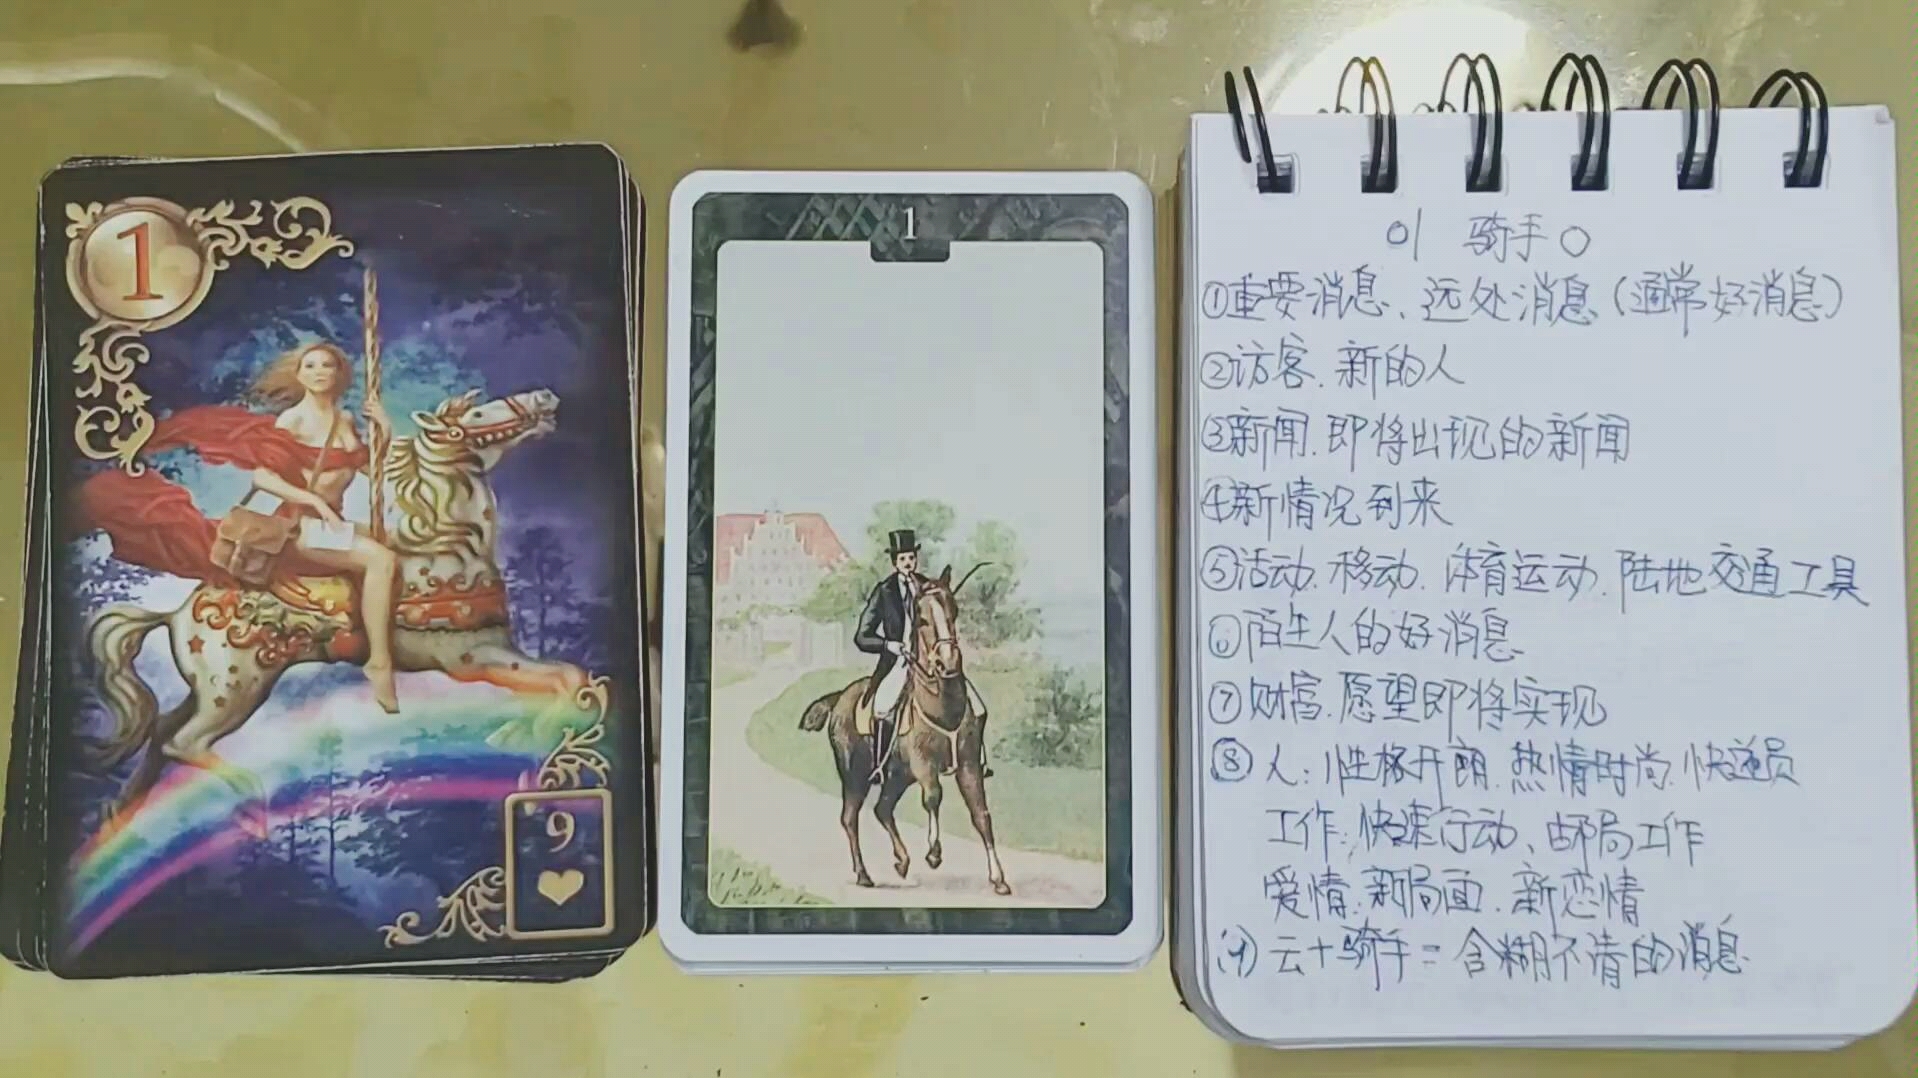 1
9
1
01 骑手○
①重要消息、远处消息(通常好消息)
②访客.新的人
③新闻.即将出现的新闻
④新情况到来
⑤活动.移动.体育运动.陆地交通工具
⑥陌生人的好消息
⑦财富.愿望即将实现
⑧人:性格开朗.热情时尚.快递员
工作:快速行动、邮局工作
爱情:新局面.新恋情
云+骑手=含糊不清的消息